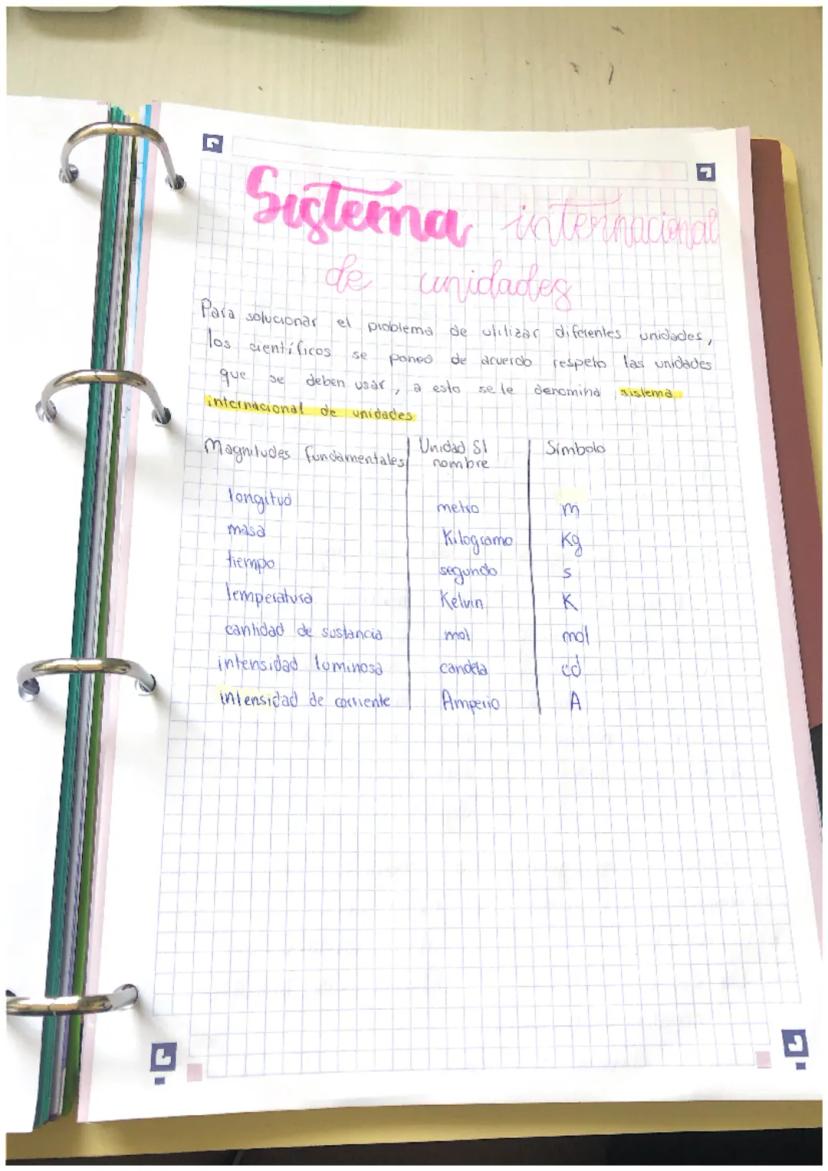 Sistema internacional
de unidades
Para solucionar el problema de utilizar diferentes unidades,
los científicos se poneo de acuerdo respeto las unidades
que se deben usar, a esto se le denomina sistema
internacional de unidades
Magnitudes fundamentales Unidad SI nombre Símbolo
longitud metro m
masa Kilogramo Kg
tiempo segundo s
temperatura Kelvin K
cantidad de sustancia mol mol
intensidad luminosa candela cd
intensidad de corriente Amperio A